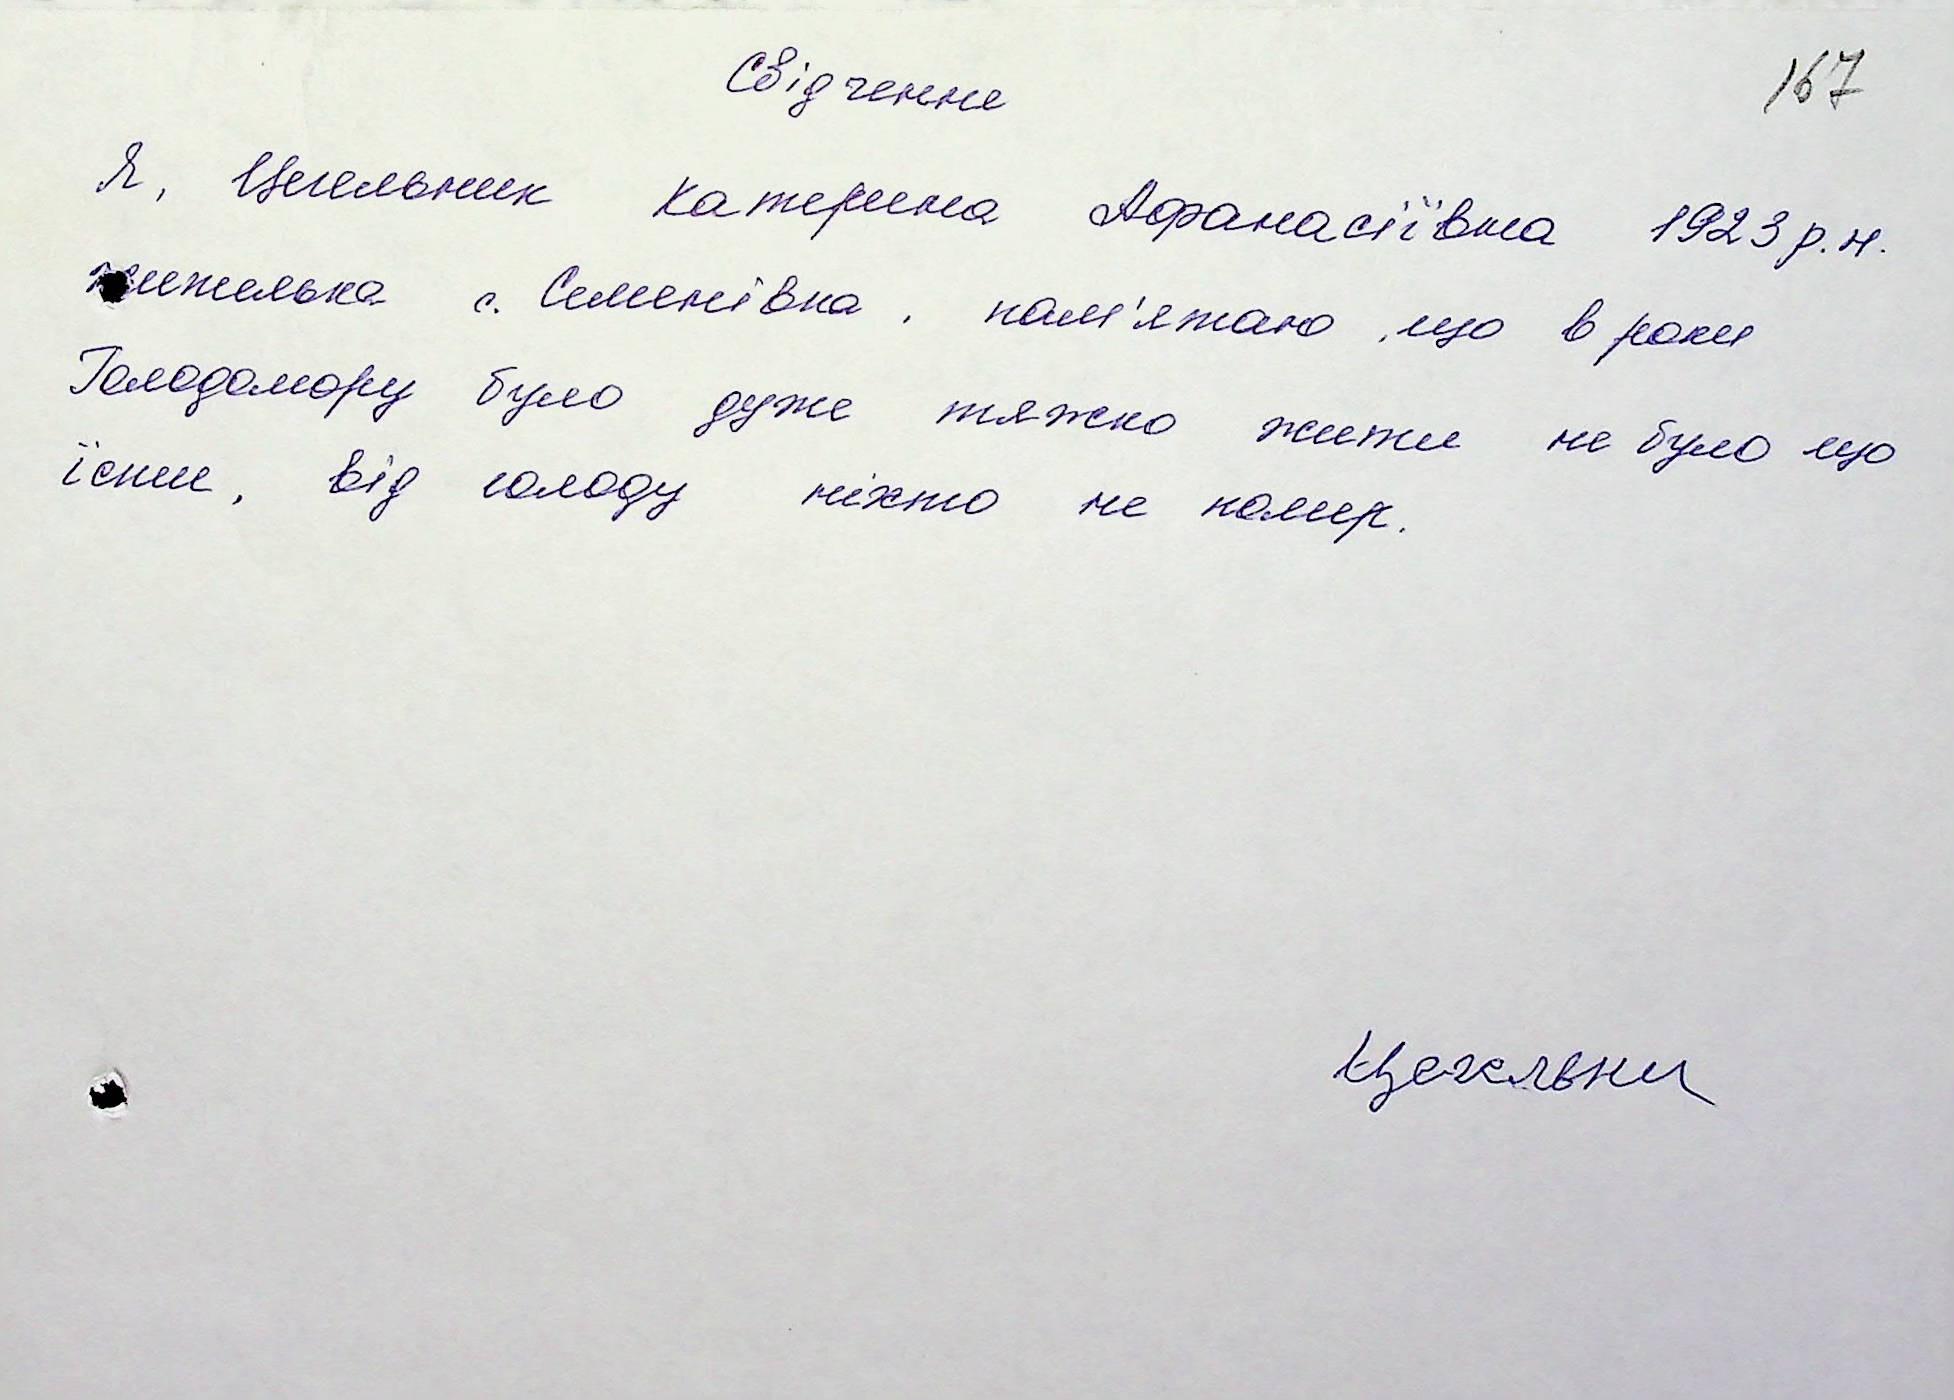 167
Свідчення
Я, Цегельник Катерина Афанасіївна 1923 р.н.
жителька с. Семенівка, пам'ятаю, що в роки
Голодомору було дуже тяжко жити не було що
їсти, від голоду ніхто не помер.
Цегельни